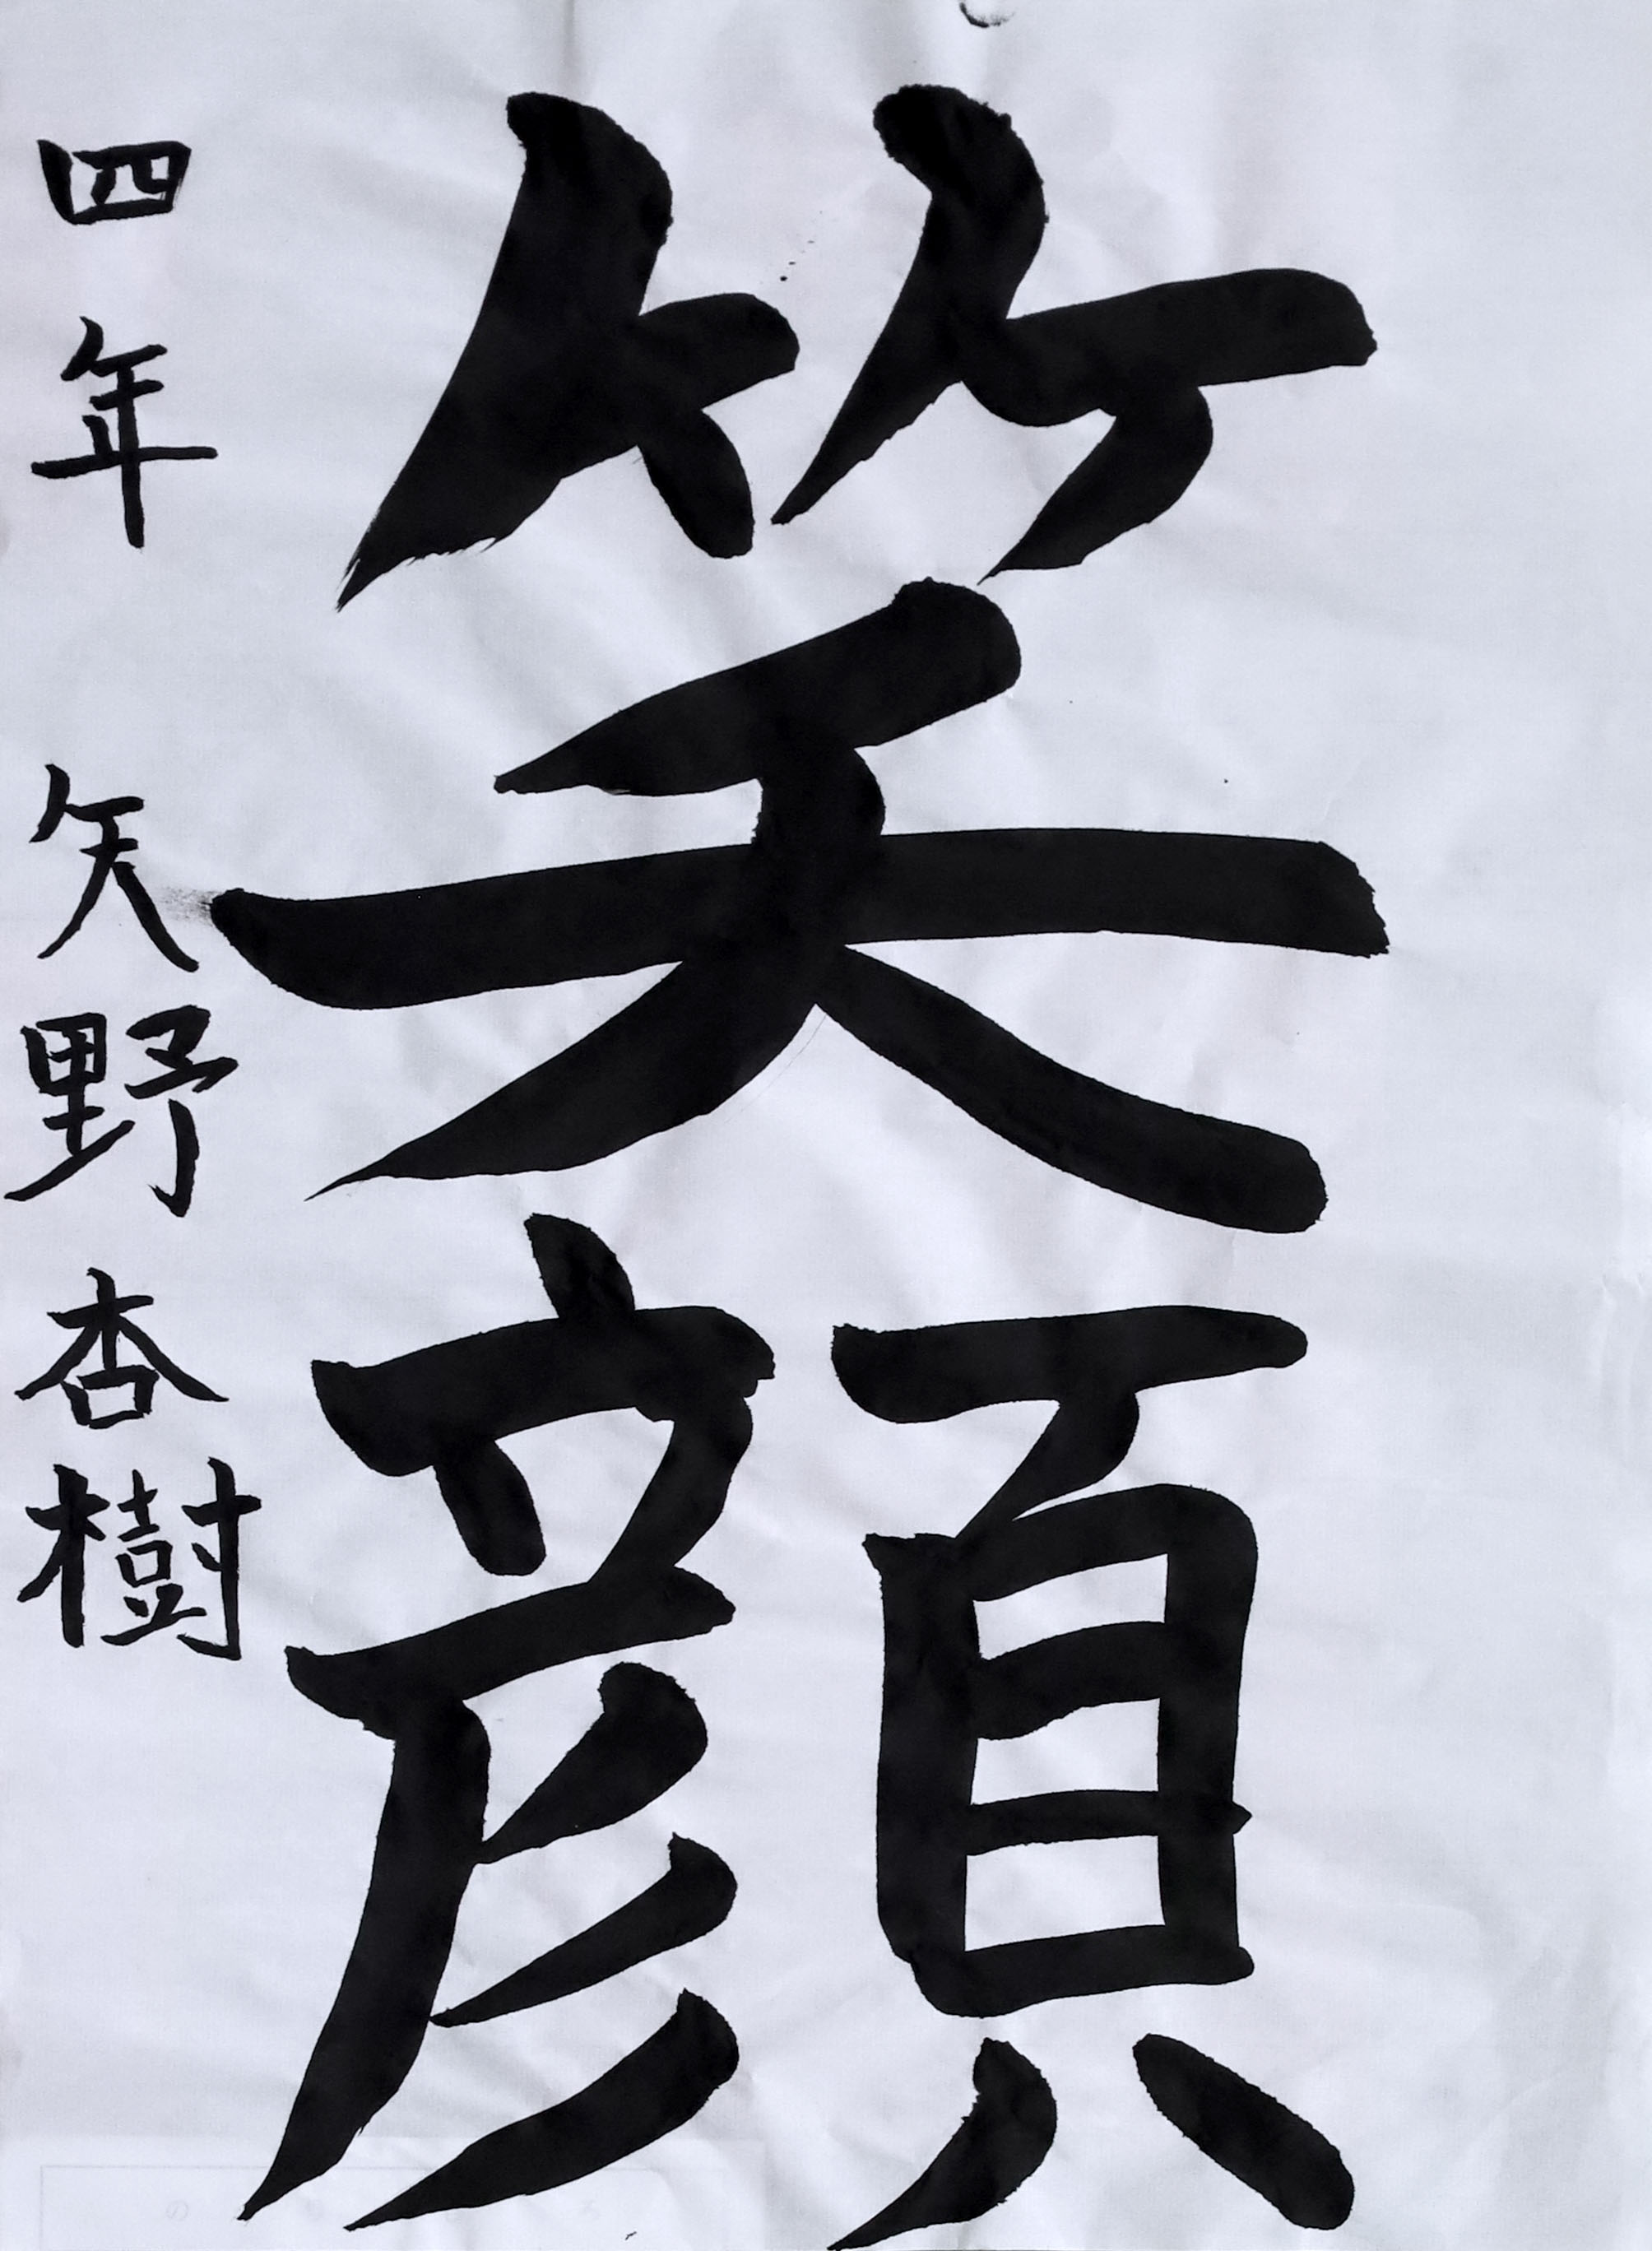 笑顔
四年 矢野杏樹